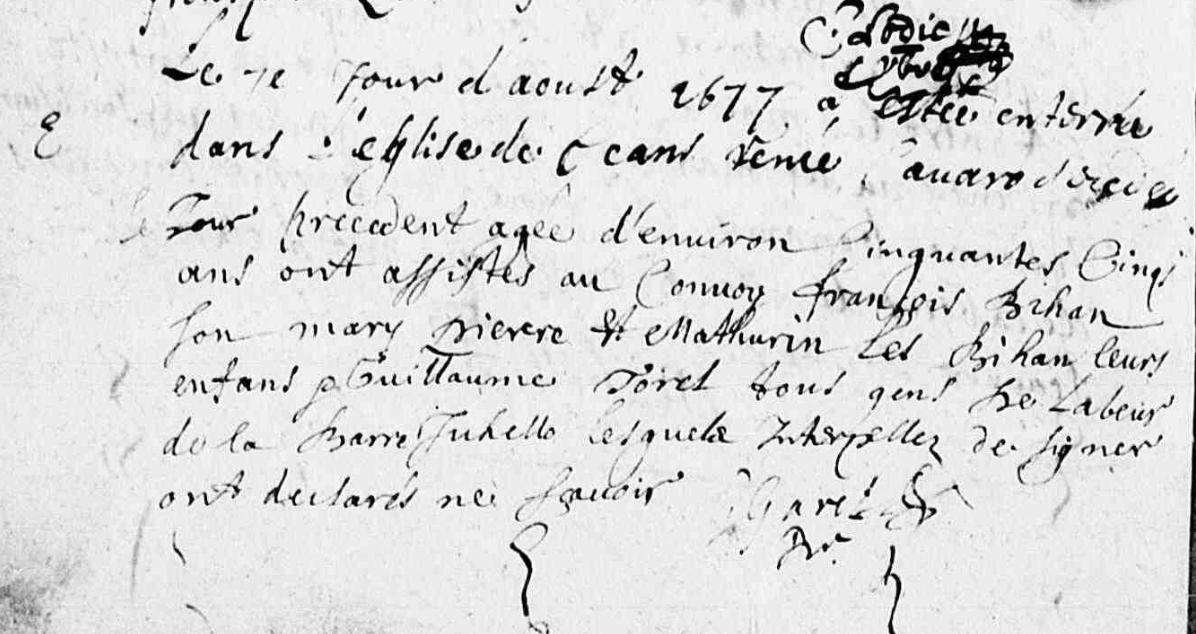 Le 7e Jour d'aoust 1677 a estee enterree
dans l'eglise de Ceans René Cavaro decedee
le Jour precedent agee d'environ Cinquantes Cinqs
ans ont assistés au Convoy françois Bihan
son mary pierre et Mathurin Les Bihan leurs
enfans Guillaume tous gens de Labeur
de la Barre Juhello lesquels Interpellez de signer
ont declarés ne sçavoir